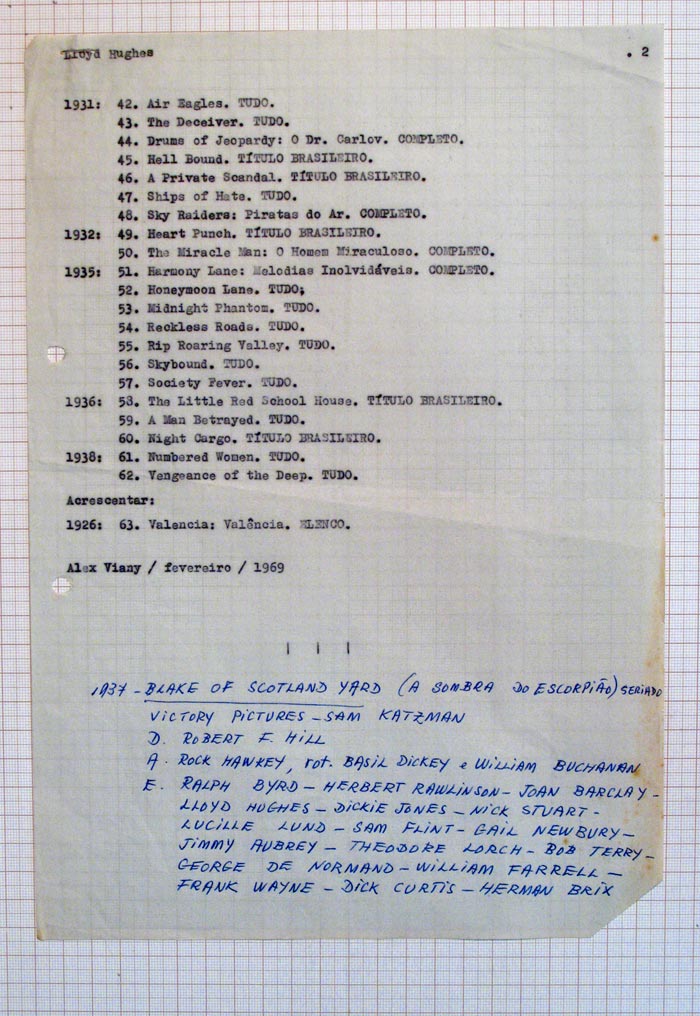 Lloyd Hughes . 2
1931: 42. Air Eagles. TUDO.
43. The Deceiver. TUDO.
44. Drums of Jeopardy: O Dr. Carlov. COMPLETO.
45. Hell Bound. TÍTULO BRASILEIRO.
46. A Private Scandal. TÍTULO BRASILEIRO.
47. Ships of Hate. TUDO.
48. Sky Raiders: Piratas do Ar. COMPLETO.
1932: 49. Heart Punch. TÍTULO BRASILEIRO.
50. The Miracle Man: O Homem Miraculoso. COMPLETO.
1935: 51. Harmony Lane: Melodias Inolvidáveis. COMPLETO.
52. Honeymoon Lane. TUDO;
53. Midnight Phantom. TUDO.
54. Reckless Roads. TUDO.
55. Rip Roaring Valley. TUDO.
56. Skybound. TUDO.
57. Society Fever. TUDO.
1936: 58. The Little Red School House. TÍTULO BRASILEIRO.
59. A Man Betrayed. TUDO.
60. Night Cargo. TÍTULO BRASILEIRO.
1938: 61. Numbered Women. TUDO.
62. Vengeance of the Deep. TUDO.
Acrescentar:
1926: 63. Valencia: Valência. ELENCO.
Alex Viany / fevereiro / 1969
1937 - BLAKE OF SCOTLAND YARD (A SOMBRA DO ESCORPIÃO) SERIADO
VICTORY PICTURES - SAM KATZMAN
D. ROBERT F. HILL
A. ROCK HAWKEY, rot. BASIL DICKEY e WILLIAM BUCHANAN
E. RALPH BYRD - HERBERT RAWLINSON - JOAN BARCLAY -
LLOYD HUGHES - DICKIE JONES - NICK STUART -
LUCILLE LUND - SAM FLINT - GAIL NEWBURY -
JIMMY AUBREY - THEODORE LORCH - BOB TERRY -
GEORGE DE NORMAND - WILLIAM FARRELL -
FRANK WAYNE - DICK CURTIS - HERMAN BRIX